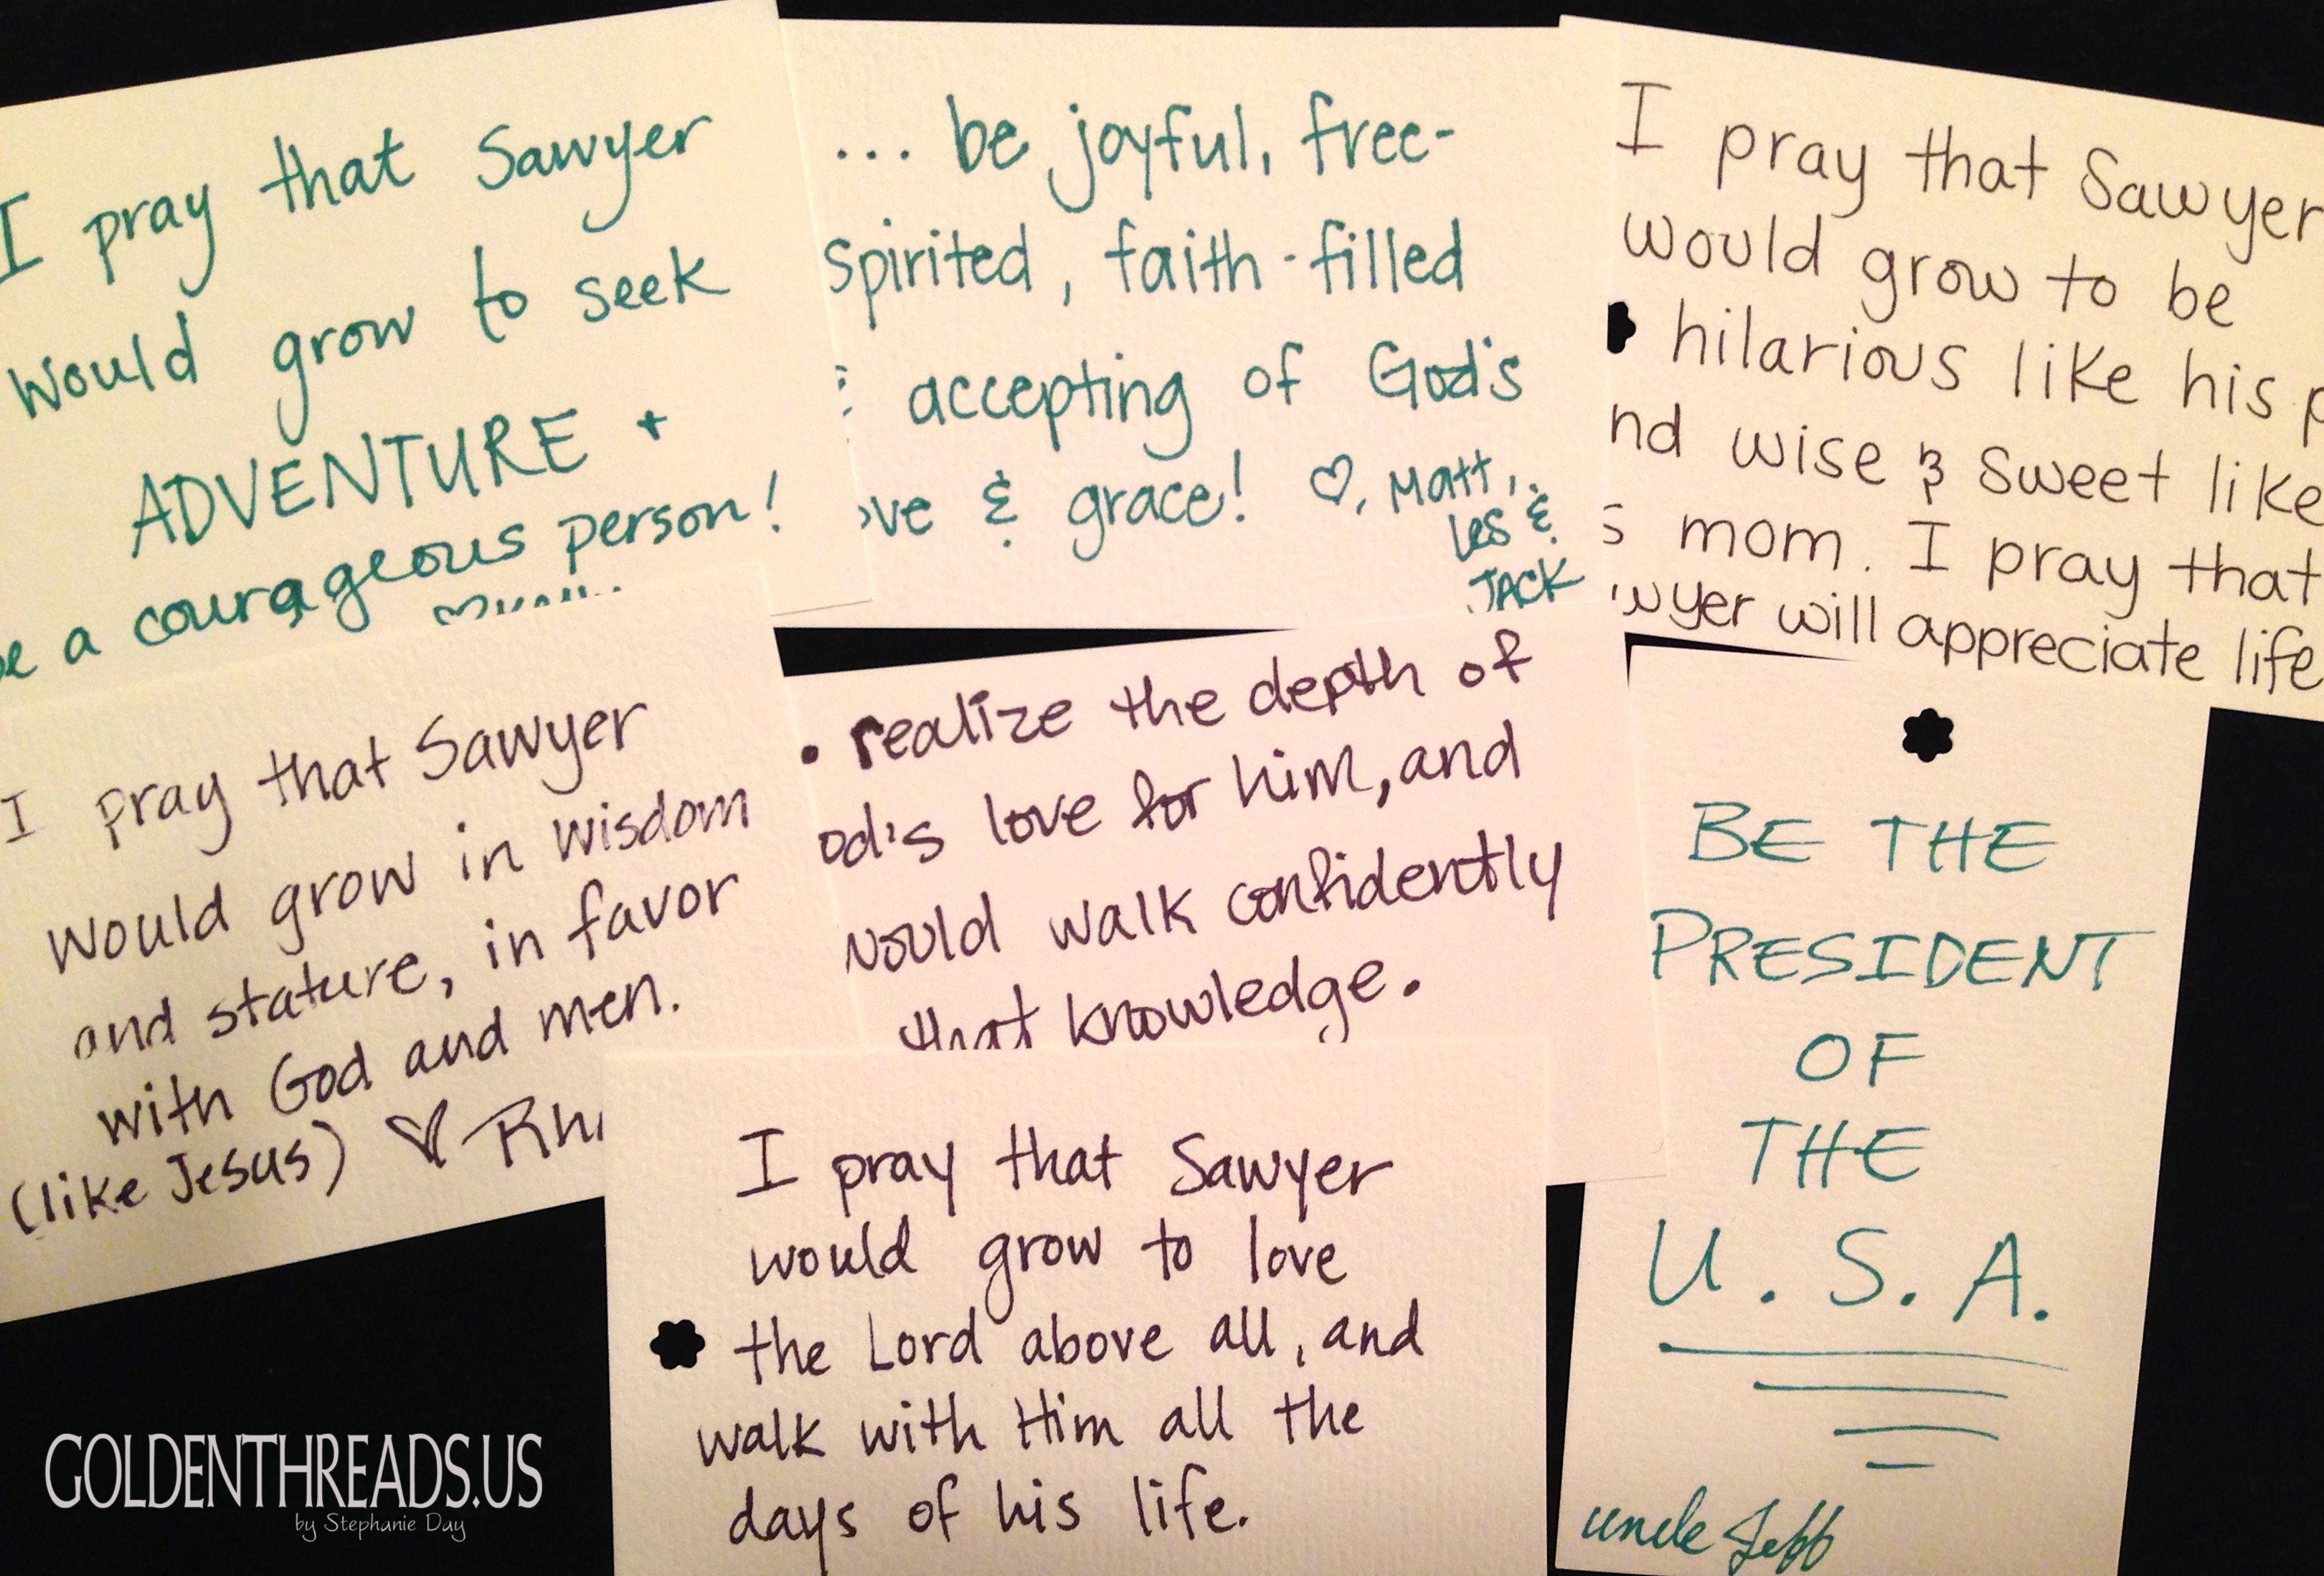 I pray that Sawyer
would grow to seek
ADVENTURE +
be a courageous person!
... be joyful, free-
spirited, faith-filled
& accepting of God's
ove & grace! ♡, Matt,
Les &
JACK
I pray that Sawyer
would grow to be
hilarious like his p
nd wise & sweet like
s mom. I pray that
wyer will appreciate life
I pray that Sawyer
would grow in wisdom
and stature, in favor
with God and men.
(like Jesus) ♡ Rh
• realize the depth of
od's love for him, and
would walk confidently
that knowledge.
BE THE
PRESIDENT
OF
THE
U.S.A.
uncle Jeff
I pray that Sawyer
would grow to love
the Lord above all, and
walk with Him all the
days of his life.
GOLDENTHREADS.US
by Stephanie Day